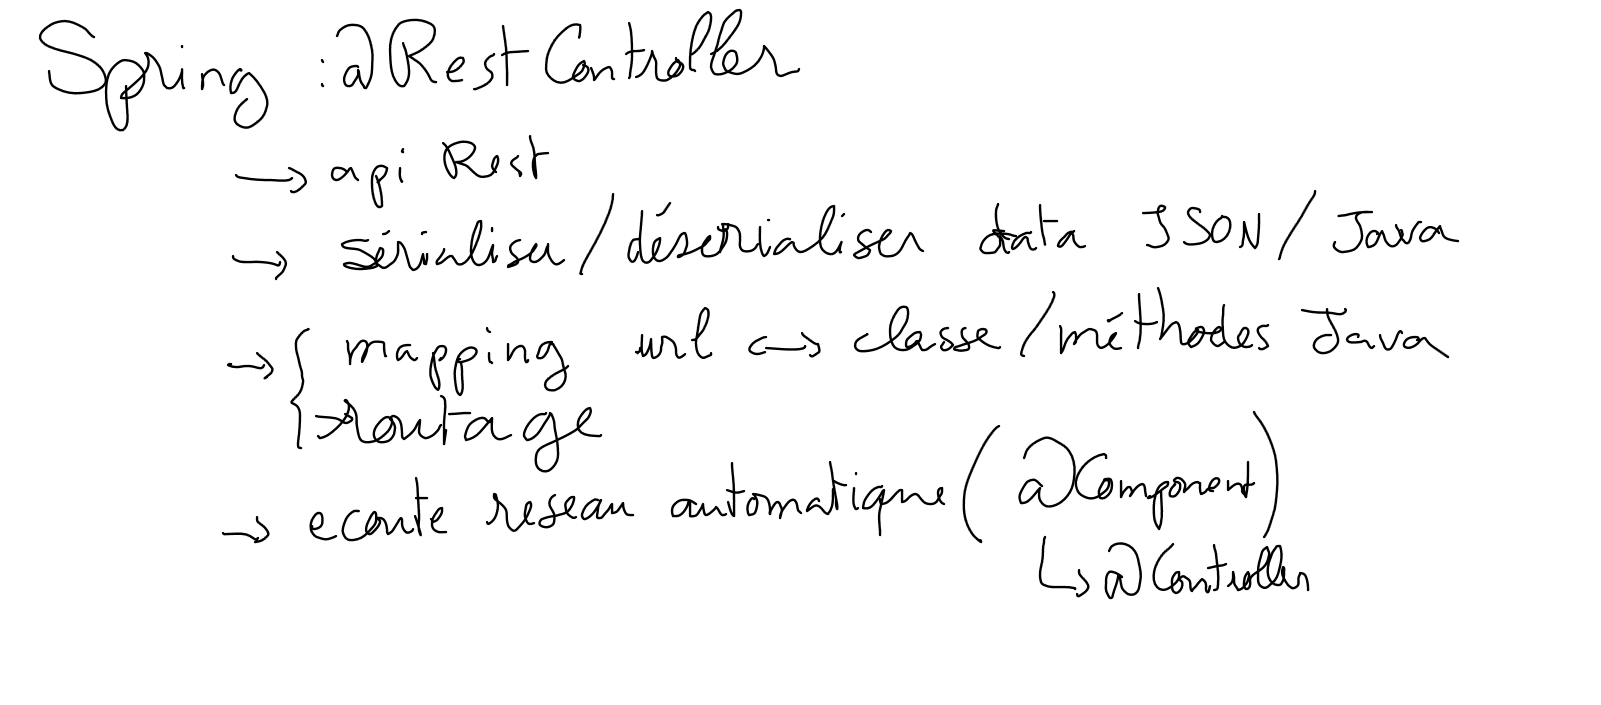 Spring : @RestController
→ api Rest
→ sérialiser / déserialiser data JSON / Java
→ { mapping url ↔ classe / méthodes Java
→ routage
→ ecoute reseau automatique (@Component)
↳ @Controller